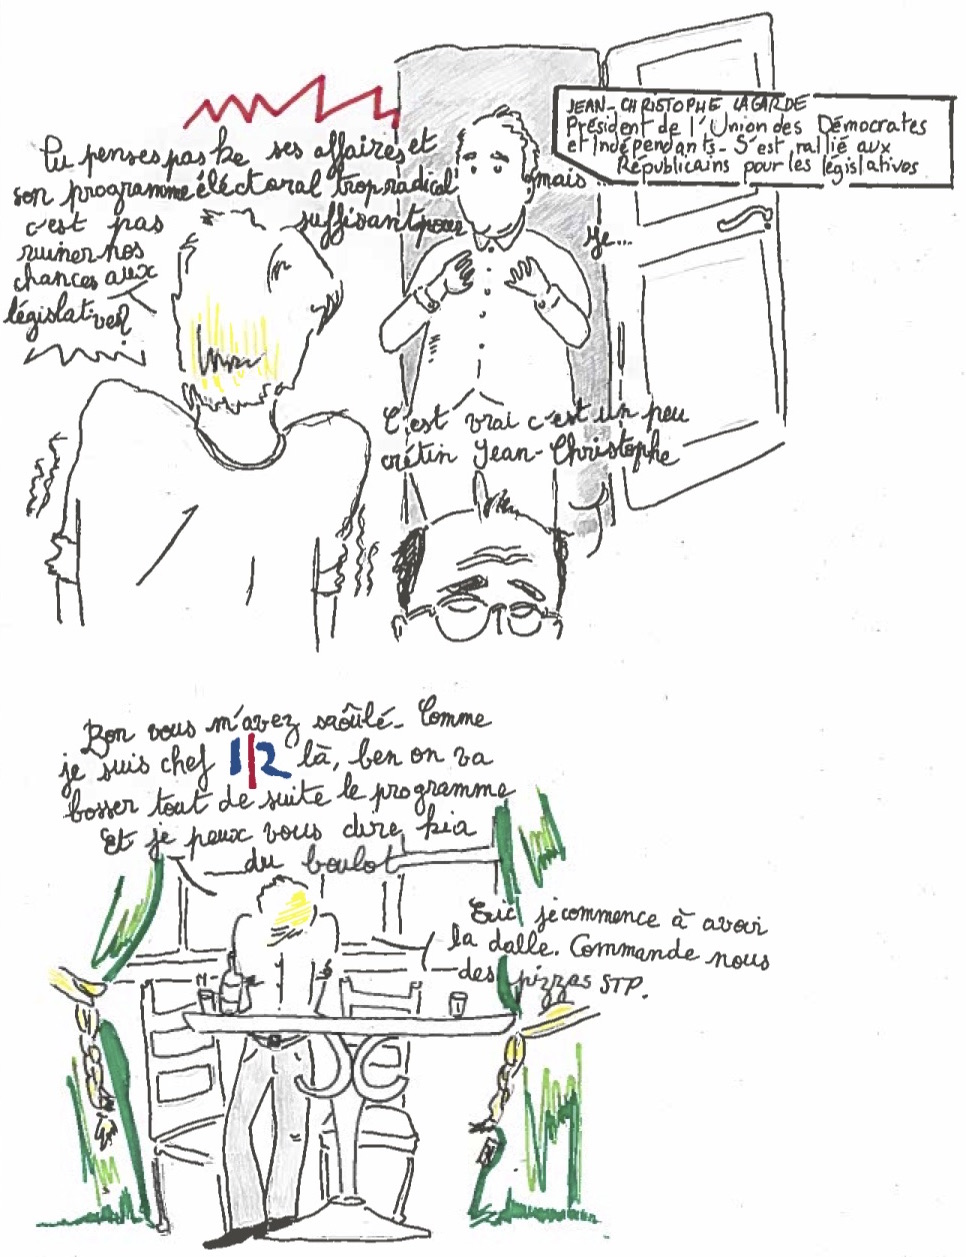 JEAN-CHRISTOPHE LAGARDE
Président de l'Union des Démocrates
et Indépendants - S'est rallié aux
Républicains pour les législatives
Tu penses pas ke ses affaires et
son programme éléctoral trop radical
suffisant pour
c'est pas
ruiner nos
chances aux
législatives?
mais
Je...
C'est vrai c'est un peu
crétin Jean-Christophe
Bon vous m'avez saôulé. Comme
je suis chef 1|2 là, ben on va
bosser tout de suite le programme
Et je peux vous dire kia
du boulot
Eric je commence à avoir
la dalle. Commande nous
des pizzas STP.